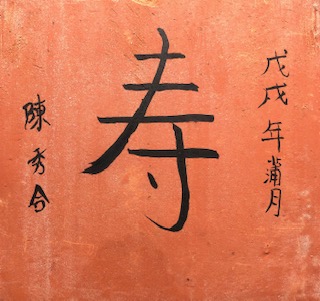 戊戌年蒲月
寿
陳秀合